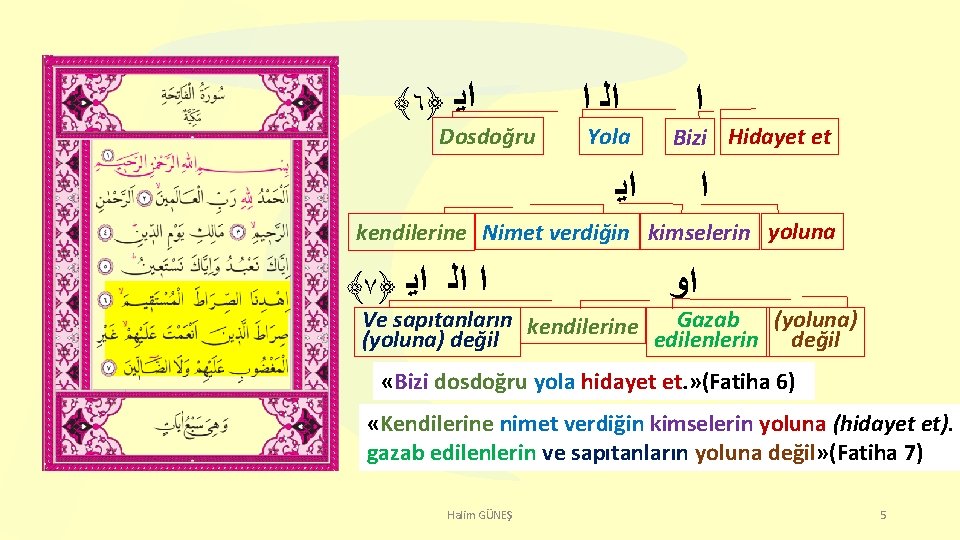 سُورَةُ الْفَاتِحَةِ
مَكِّيَّة
بِسْمِ اللّٰهِ الرَّحْمٰنِ الرَّحِيمِ ﴿١﴾
اَلْحَمْدُ لِلّٰهِ رَبِّ الْعَالَمِينَ ﴿٢﴾ اَلرَّحْمٰنِ
الرَّحِيمِ ﴿٣﴾ مَالِكِ يَوْمِ الدِّينِ ﴿٤﴾
اِيَّاكَ نَعْبُدُ وَاِيَّاكَ نَسْتَعِينُ ﴿٥﴾
اِهْدِنَا الصِّرَاطَ الْمُسْتَقِيمَ ﴿٦﴾
صِرَاطَ الَّذِينَ اَنْعَمْتَ عَلَيْهِمْ غَيْرِ
الْمَغْضُوبِ عَلَيْهِمْ وَلَا الضَّالِّينَ ﴿٧﴾
وَهِيَ سَبْعُ اٰيَاتٍ
ا الـ ا ايـ ﴿٦﴾
Dosdoğru Yola Bizi Hidayet et
ا ايـ
kendilerine Nimet verdiğin kimselerin yoluna
او ا الـ ايـ ﴿٧﴾
Ve sapıtanların (yoluna) değil kendilerine Gazab edilenlerin (yoluna) değil
«Bizi dosdoğru yola hidayet et.»(Fatiha 6)
«Kendilerine nimet verdiğin kimselerin yoluna (hidayet et).
gazab edilenlerin ve sapıtanların yoluna değil»(Fatiha 7)
Halim GÜNEŞ
5